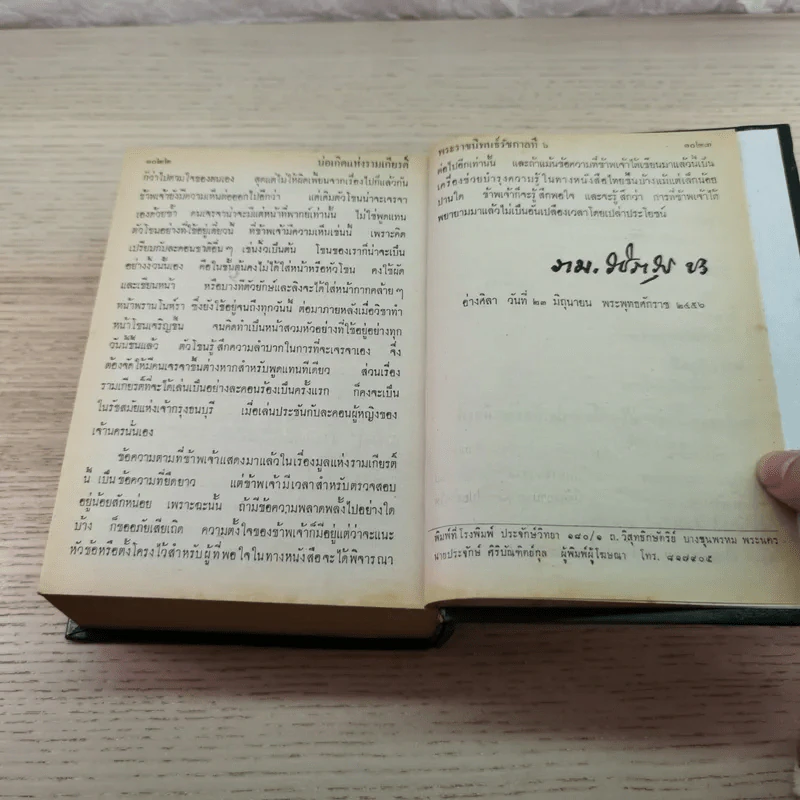 ๑๐๒๒ บ่อเกิดแห่งรามเกียรติ์
ก็ว่าไปตามใจของตนเอง สุดแต่ไม่ให้ผิดเพี้ยนจากเรื่องไปก็แล้วกัน
ข้าพเจ้ายังมีความเห็นต่อออกไปอีกว่า แต่เดิมตัวโขนน่าจะเจรจา
เองด้วยซ้ำ คนเจรจาน่าจะมีแต่หน้าที่พากย์เท่านั้น ไม่ใช่พูดแทน
ตัวโขนอย่างที่ใช้อยู่เดี๋ยวนี้ ที่ข้าพเจ้ามีความเห็นเช่นนี้ เพราะคิด
เปรียบกับละคอนชาติอื่น ๆ เช่นงิ้วเป็นต้น โขนของเราก็น่าจะเป็น
อย่างงิ้วนั้นเอง คือในชั้นต้นคงไม่ได้ใส่หน้าหรือหัวโขน คงใช้ผัด
และเขียนหน้า หรือบางทีตัวยักษ์และลิงจะได้ใส่หน้ากากคล้าย ๆ
หน้าพรานโนห์รา ซึ่งยังใช้อยู่จนถึงทุกวันนี้ ต่อมาภายหลังเมื่อวิชาทำ
หน้าโขนเจริญขึ้น จนคิดทำเป็นหน้าสวมหัวอย่างที่ใช้อยู่อย่างทุก
วันนี้ขึ้นแล้ว ตัวโขนรู้สึกความลำบากในการที่จะเจรจาเอง จึ่ง
ต้องจัดให้มีคนเจรจาขึ้นต่างหากสำหรับพูดแทนทีเดียว ส่วนเรื่อง
รามเกียรติ์ที่จะได้เล่นเป็นอย่างละคอนร้องเป็นครั้งแรก ก็คงจะเป็น
ในรัชสมัยแห่งเจ้ากรุงธนบุรี เมื่อเล่นประชันกับละคอนผู้หญิงของ
เจ้านครนั้นเอง
ข้อความตามที่ข้าพเจ้าแสดงมาแล้วในเรื่องมูลแห่งรามเกียรติ์
นี้ เป็นข้อความที่ยืดยาว แต่ข้าพเจ้ามีเวลาสำหรับตรวจสอบ
อยู่น้อยสักหน่อย เพราะฉะนั้น ถ้ามีข้อความพลาดพลั้งไปอย่างใด
บ้าง ก็ขออภัยเสียเถิด ความตั้งใจของข้าพเจ้าก็มีอยู่แต่ว่าจะแนะ
หัวข้อหรือตั้งโครงไว้สำหรับผู้ที่พอใจในทางหนังสือจะได้พิจารณา
พระราชนิพนธ์รัชกาลที่ ๖ ๑๐๒๓
ต่อไปอีกเท่านั้น และถ้าแม้นข้อความที่ข้าพเจ้าได้เขียนมาแล้วนี้เป็น
เครื่องช่วยบำรุงความรู้ในทางหนังสือไทยขึ้นบ้างแม้แต่เล็กน้อย
ปานใด ข้าพเจ้าก็จะรู้สึกพอใจ และจะรู้สึกว่า การที่ข้าพเจ้าได้
พยายามมาแล้วไม่เป็นอันเปลืองเวลาโดยเปล่าประโยชน์
อ่างศิลา วันที่ ๒๓ มิถุนายน พระพุทธศักราช ๒๔๕๖
พิมพ์ที่โรงพิมพ์ ประจักษ์วิทยา ๑๘๐/๑ ถ. วิสุทธิกษัตริย์ บางขุนพรหม พระนคร
นายประจักษ์ ศิริบัณฑิตย์กุล ผู้พิมพ์ผู้โฆษณา โทร. ๘๑๗๔๐๕